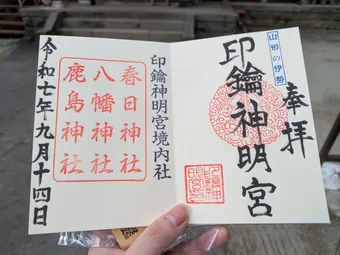 奉拝
山形の伊勢
印鑰神明宮
印鑰神明宮境内社
春日神社
八幡神社
鹿島神社
令和七年九月十四日